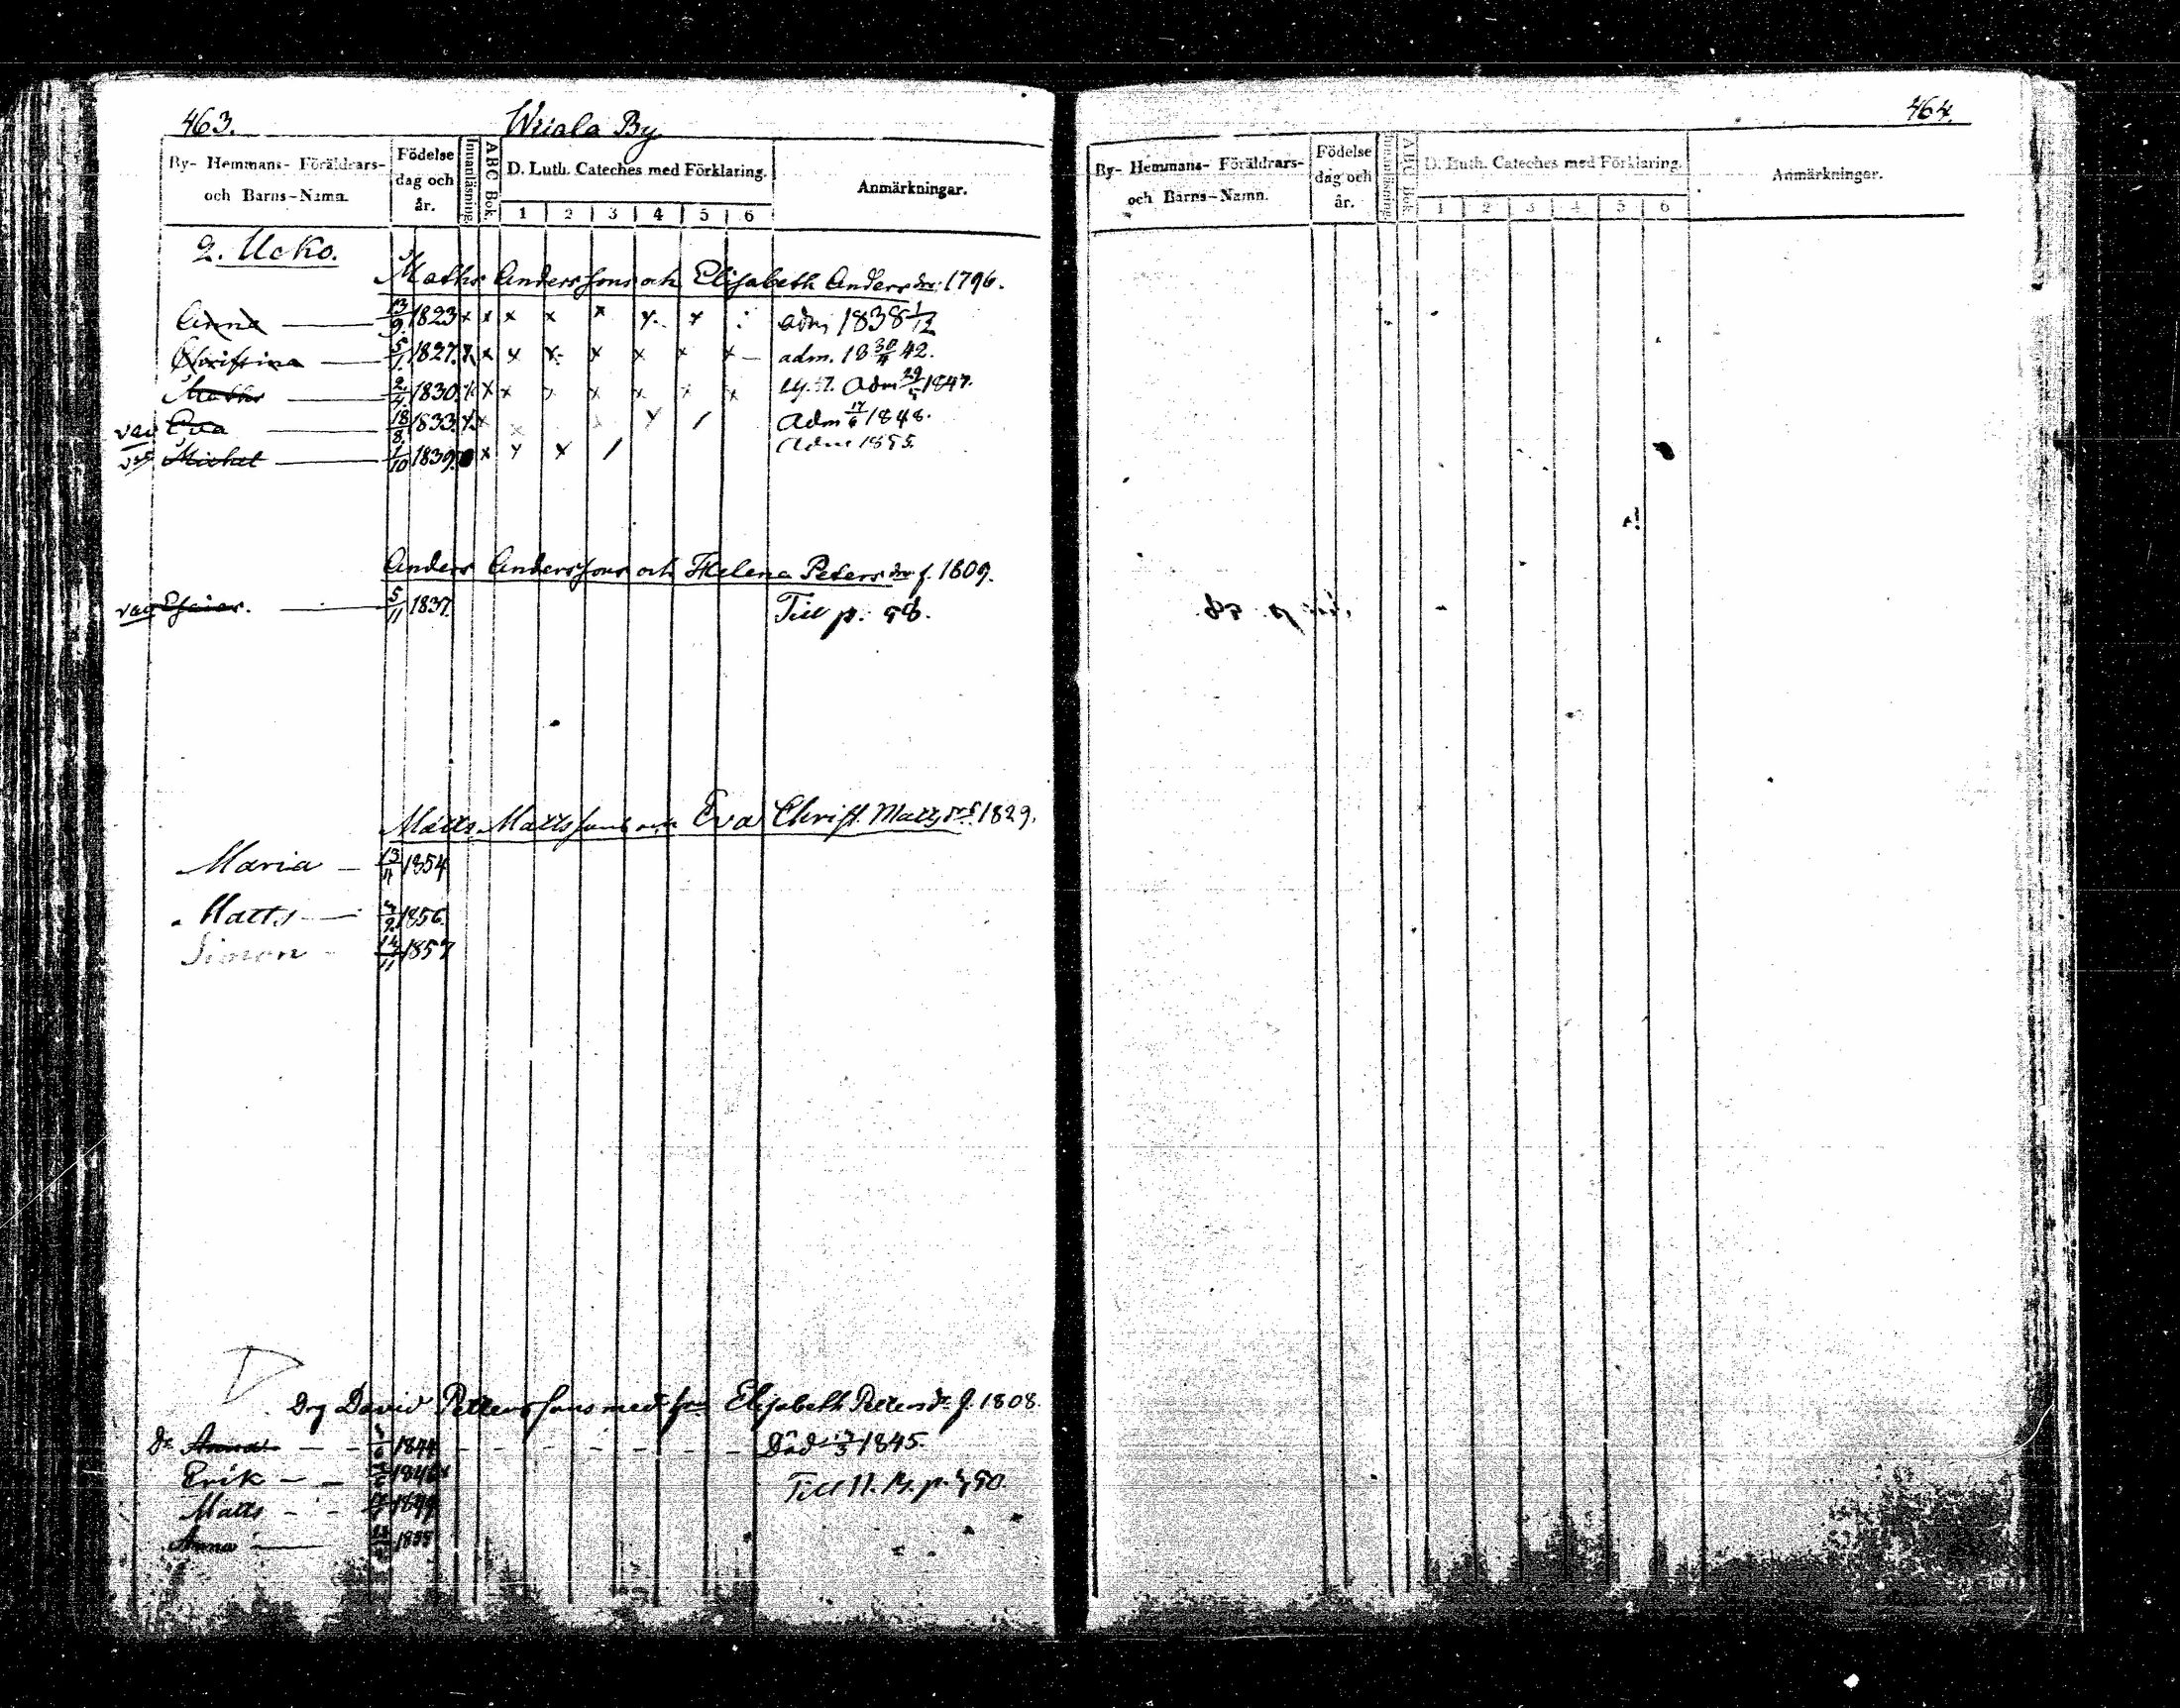 463. Wriala By
By- Hemmans- Föräldrars- och Barns-Namn. Födelse dag och år. Innanläsning. ABC Bok. D. Luth. Cateches med Förklaring. 1 2 3 4 5 6 Anmärkningar.
2. Ucko.
Maths Anderssons och Elisabeth Andersdr. 1796.
Anna 13/9 1823 x x x x x x x adm 1838 1/12
Christina 5/1 1827. x x x x x x x x adm. 18 30/4 42.
Maths 2/4 1830. x x x x x x x adm 29/5 1847.
vac Eva 18/8 1833. x x x x / Adm 17/6 1848.
vac Michel 1/10 1839. x x x / Adm 1855.
Anders Anderssons och Helena Petersdr f. 1809.
vac Esaias. 5/11 1837. Till p. 98.
Matts Mattssons och Eva Christ. Mattsdr f. 1829.
Maria 13/4 1854
Matts 1856.
Simon 14/11 1857
Drg David Petterssons med Elisabeth Petersdr f. 1808.
Anna 1844 Död 1845.
Erik 1846
Matts
Anna 1855
464.
By- Hemmans- Föräldrars- och Barns-Namn. Födelse dag och år. Innanläsning. ABC Bok. D. Luth. Cateches med Förklaring. 1 2 3 4 5 6 Anmärkningar.